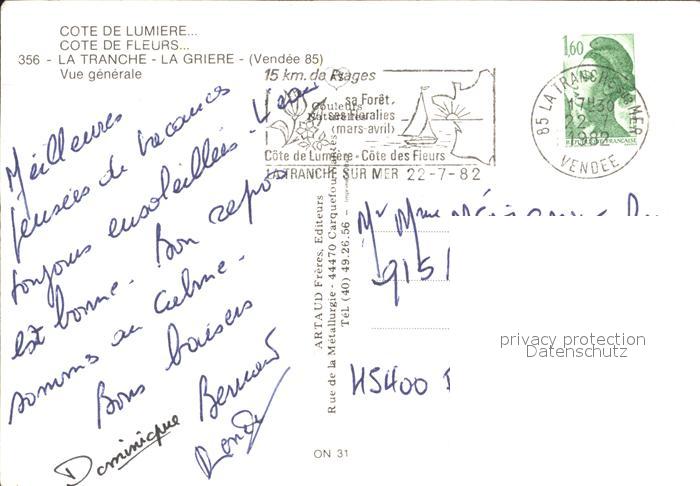 COTE DE LUMIERE...
COTE DE FLEURS...
356 - LA TRANCHE - LA GRIERE - (Vendée 85)
Vue générale
15 km. de Plages
Couleurs
sa Forêt,
ses Floralies
(mars-avril)
Côte de Lumière - Côte des Fleurs
LA TRANCHE SUR MER 22-7-82
1,60
REPUBLIQUE FRANÇAISE
85 LA TRANCHE SUR MER
17H30
22-7
1982
VENDEE
Meilleures
pensées de vacances
toujours ensoleillées -
est bonne - Bon repos
sommes au calme -
Bons baisers
Dominique Bernard
ARTAUD Frères, Editeurs
Rue de la Métallurgie - 44470 Carquefou
Tél (40) 49.26.56 -
Mr Mme
9151
45400
privacy protection
Datenschutz
ON 31